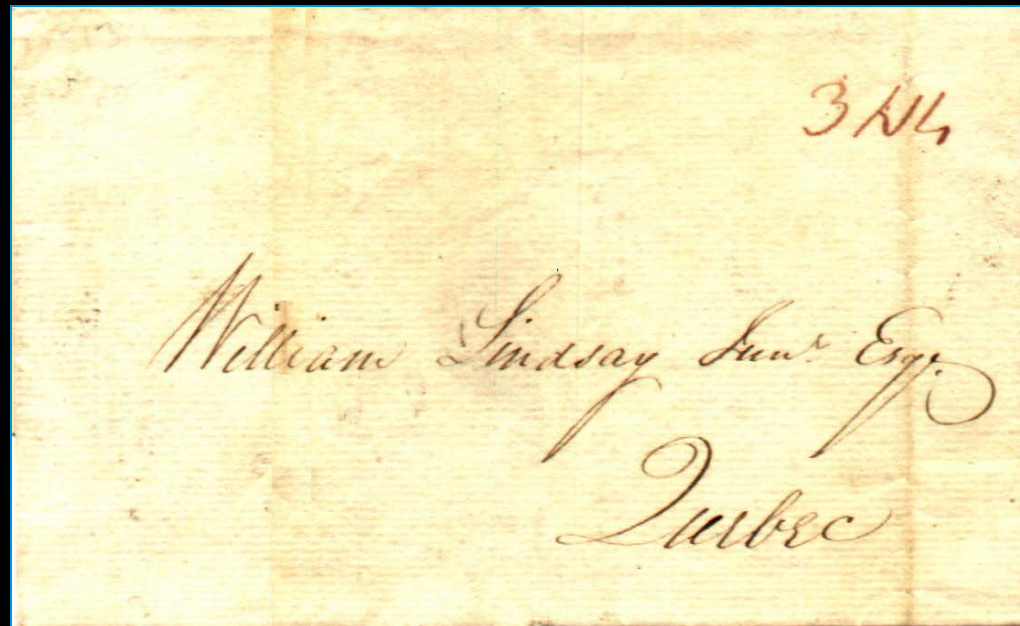 William Lindsay Junr Esqr.
Quebec